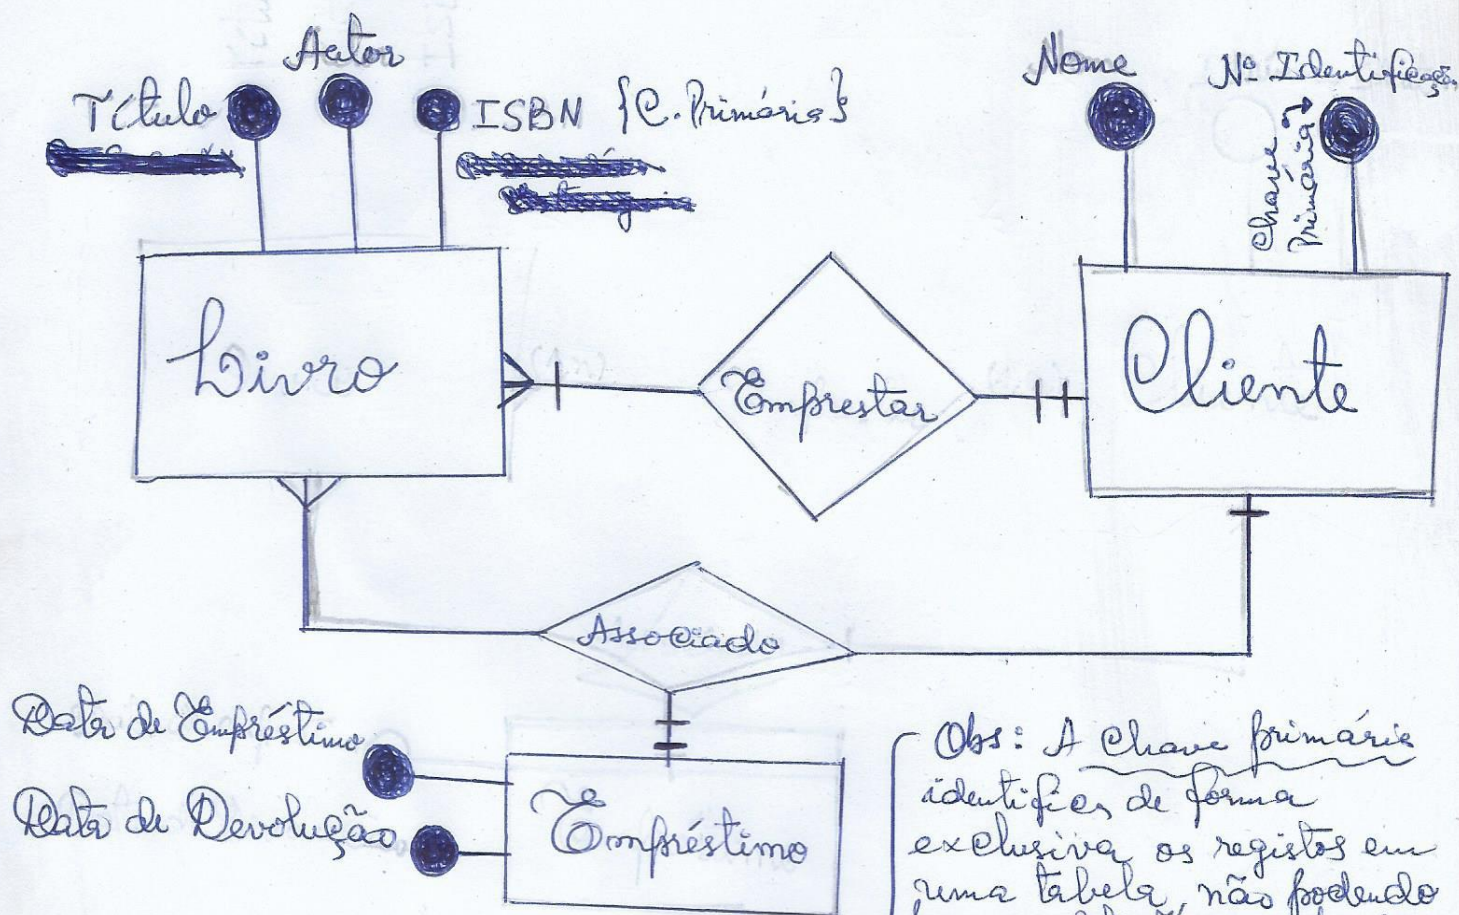 Autor
Título
ISBN {C. Primária}
Nome
Nº Identificação
Chave
Primária
Livro
Emprestar
Cliente
Associado
Data de Empréstimo
Data de Devolução
Empréstimo
Obs: A Chave primária
identifica de forma
exclusiva os registos em
uma tabela, não podendo